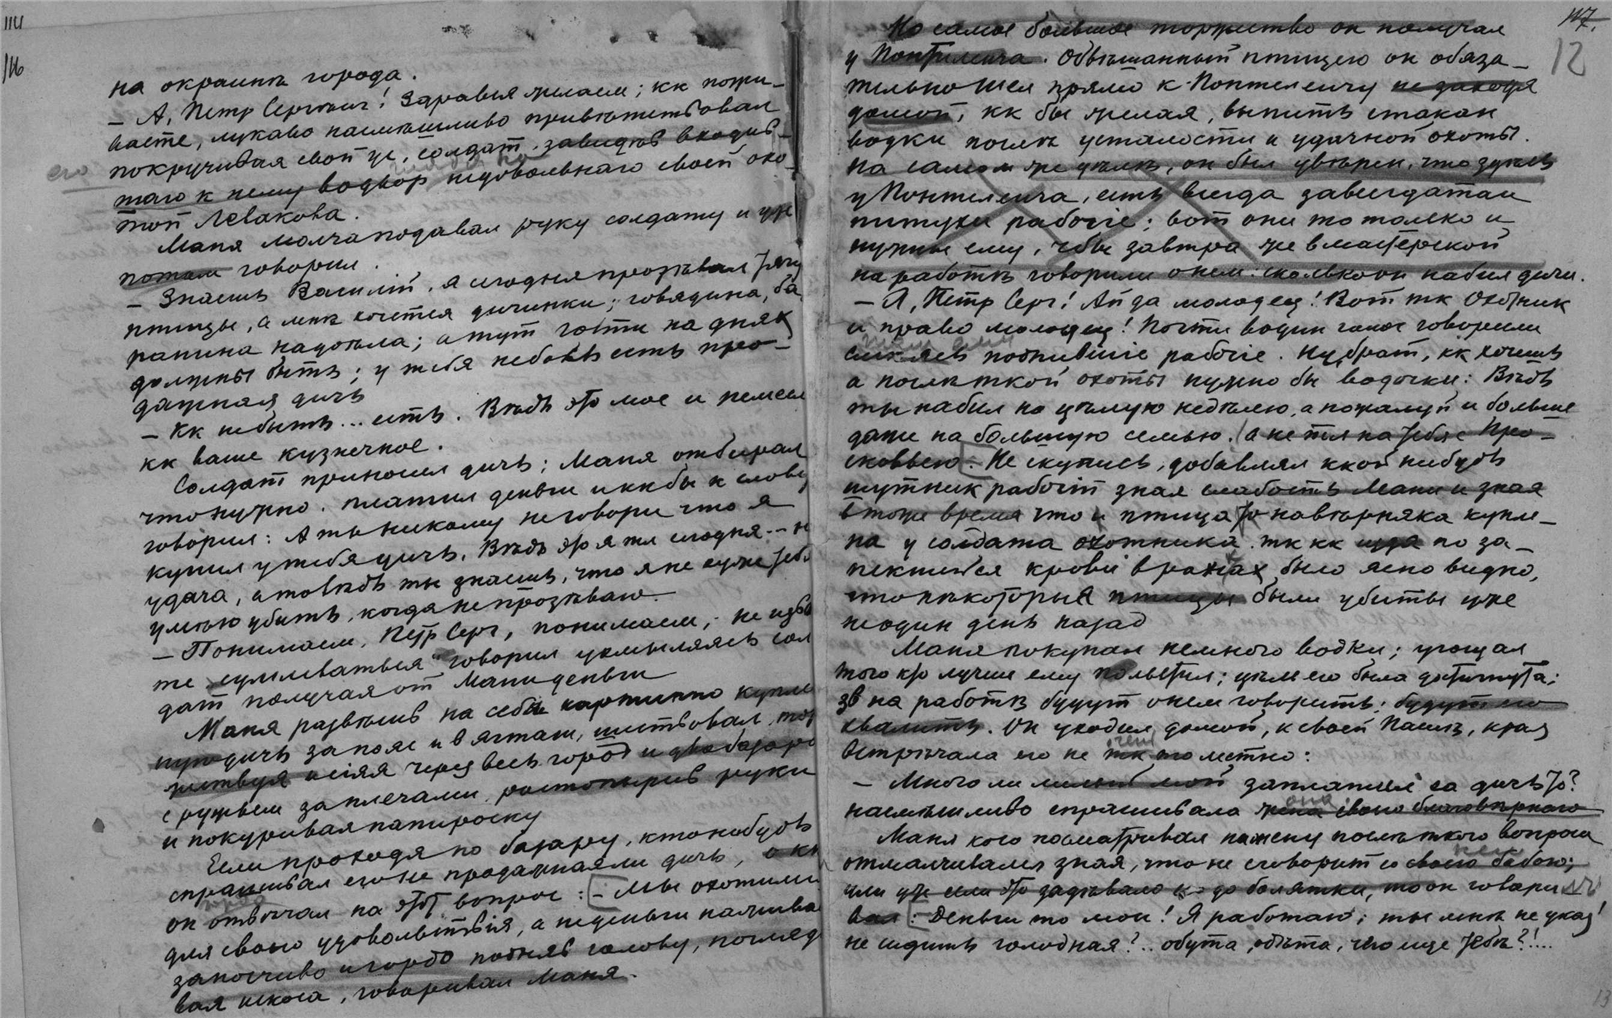 114
116
на окраинѣ города.
– А, Петр Сергѣич! Здравья желаем; кк пожи-
ваете, лукаво насмѣшливо привѣтствовал
покручивая свой ус, солдат, завидѣв входив-
его
шаго к нему во двор недовольнаго своей охо-
той Левакова.
Маня молча подавал руку солдату и уж
потом говорил.
– Знаешь Василий, я сегодня прозѣвал
птицы, а мнѣ хочется дичинки; говядина, ба
ранина надоѣла; а тут гости на днях
должны быть; у тебя небось есть про-
дажная дичь
– Кк не быть... есть. Вѣдь это мое и ремесл
кк ваше кузнечное.
Солдат приносил дичь; Маня отбирал
что нужно. платил деньги и кк бы к слову
говорил: А ты никому не говори что я
купил у тебя дичь. Вѣдь это я тк сегодня... н
удача, а то вѣдь ты знаешь, что я не хуже тебя
умѣю убить, когда не прозѣваю.
– Понимаем, Петр Серг, понимаем; не изв
те сумлеваться говорил ухмыляясь сол
дат получая от Мани деньги
Маня развѣсив на себѣ картинно купле
ную дичь за пояс и в ягташ, шествовал, тор
жествуя и сіяя через весь город и два базара
с ружьем за плечами, растопырив руки
и покуривая папироску
Если проходя по базару, кто нибудь
спрашивал его не продажная ли дичь, о кк
он отвѣчал на этот вопрос: – Мы охотимся
для своего удовольствія, а не деньги наживае
запосчиво и гордо подняв голову, погляд
вая искоса, говаривал Маня.
117.
12
Но самое большое торжество он получал
у Понтелеича. Обвѣшанный птицею он обяза-
тельно шел прямо к Понтелеичу не заходя
домой, кк бы желая, выпить стакан
водки послѣ усталости и удачной охоты.
На самом же дѣлѣ, он был увѣрен, что здѣсь
у Понтелеича, есть всегда завсегдатаи
питухи рабочіе; вот они то только и
нужны ему, чтобы завтра же в мастерской
на работѣ говорили о нем: сколько он набил дичи.
– А, Петр Серг! Ай да молодец! Вот тк Охотник
и право молодец! Почти в один голос говорили
ему
подпившіе рабочіе. Ну, брат, кк хочешь
а послѣ ткой охоты нужно бы водочки: Вѣдь
ты набил на цѣлую недѣлю, а пожалуй и больше
даже на большую семью. а не тк на тебя с Про-
сковьею. Не скупись, добавлял ккой нибудь
шутник рабочій зная слабость Мани и зная
в тоже время что и птица то навѣрняка купле-
на у солдата охотника тк кк по за-
пекшейся крови в ранах, было ясно видно,
что нѣкоторыя птицы были убиты уже
не один день назад
Маня покупал немного водки; угощал
того кто лучше ему польстил; цѣль его была достигнута:
зв на работѣ будут о нем говорить: будут его
хвалить. Он уходил домой, к своей Пашѣ, края
встрѣчала его не очень тк лестно:
– Много ли милый мой заплатил за дичь то?
насмѣшливо спрашивала она жена своего благовѣрнаго
Маня косо посматривал на жену послѣ ткого вопроса
отмалчивался зная, что не сговорит со своею бабою;
нею
или уж если это задѣвало до болятки, то он говари
вал: Деньги то мои! Я работаю; ты мнѣ не указ!
не сидишь голодная?.. обута, одѣта, чего еще тебѣ?!...
13